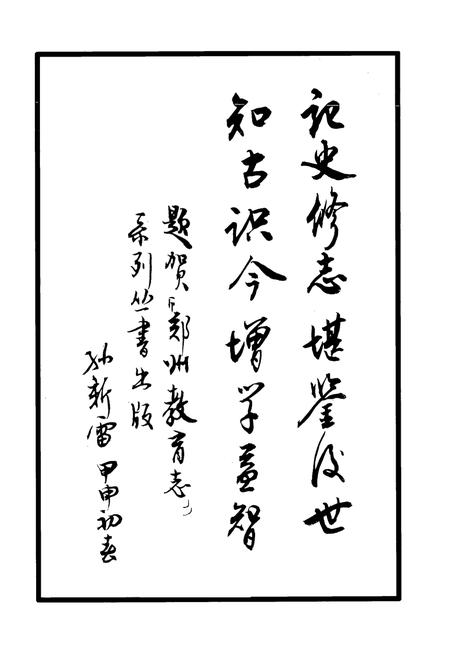 记史修志堪鉴后世
知古识今增学益智
题贺“郑州教育志”
系列丛书出版
孙新雷 甲申初春